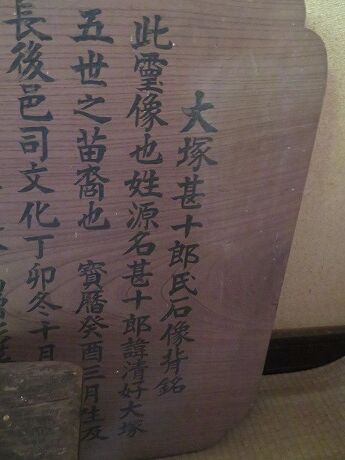 大塚甚十郎氏石像背銘
此霊像也姓源名甚十郎諱清好大塚
五世之苗裔也 寳暦癸酉三月生反
長後邑司文化丁卯冬十月